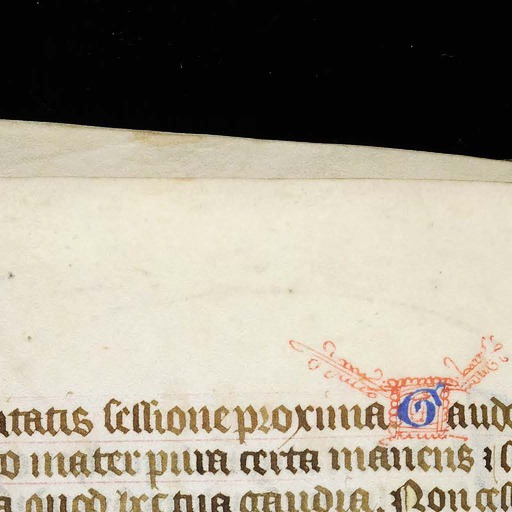 itatis sessione proxima Gaude
o mater pura certa manens i s
a quod hec tua gaudia. Non ces